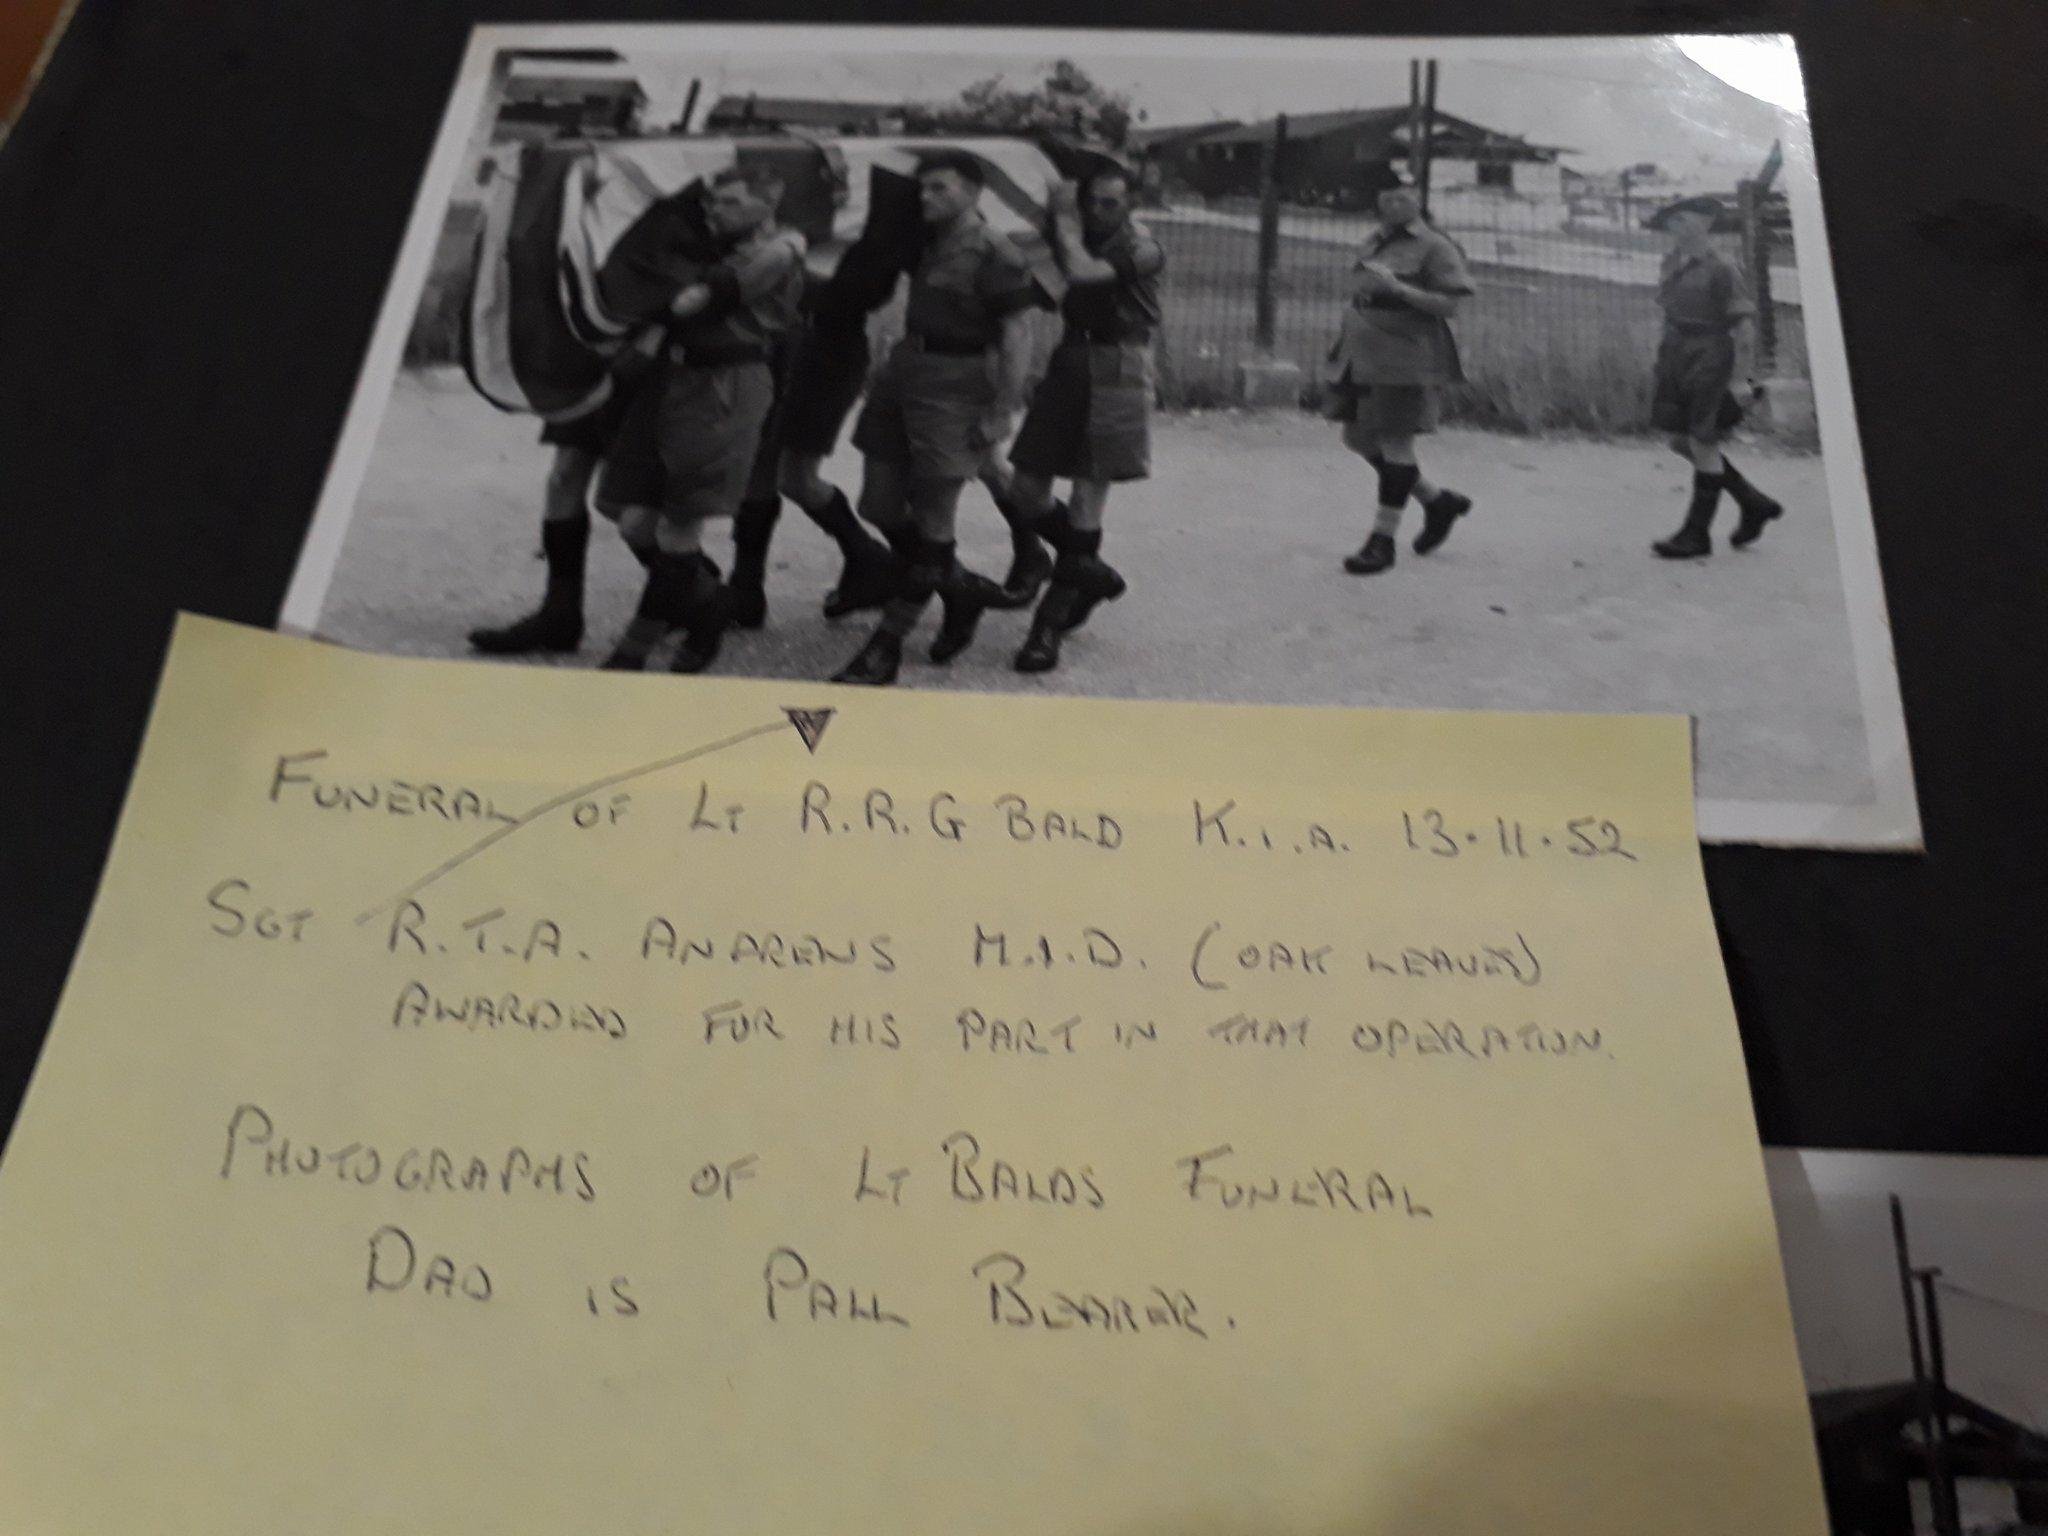 FUNERAL OF LT R.R.G BALD K.I.A. 13.11.52
SGT R.T.A. ANDREWS M.I.D. (OAK LEAVES)
AWARDED FOR HIS PART IN THAT OPERATION.
PHOTOGRAPHS OF LT BALDS FUNERAL
DAD IS PALL BEARER.